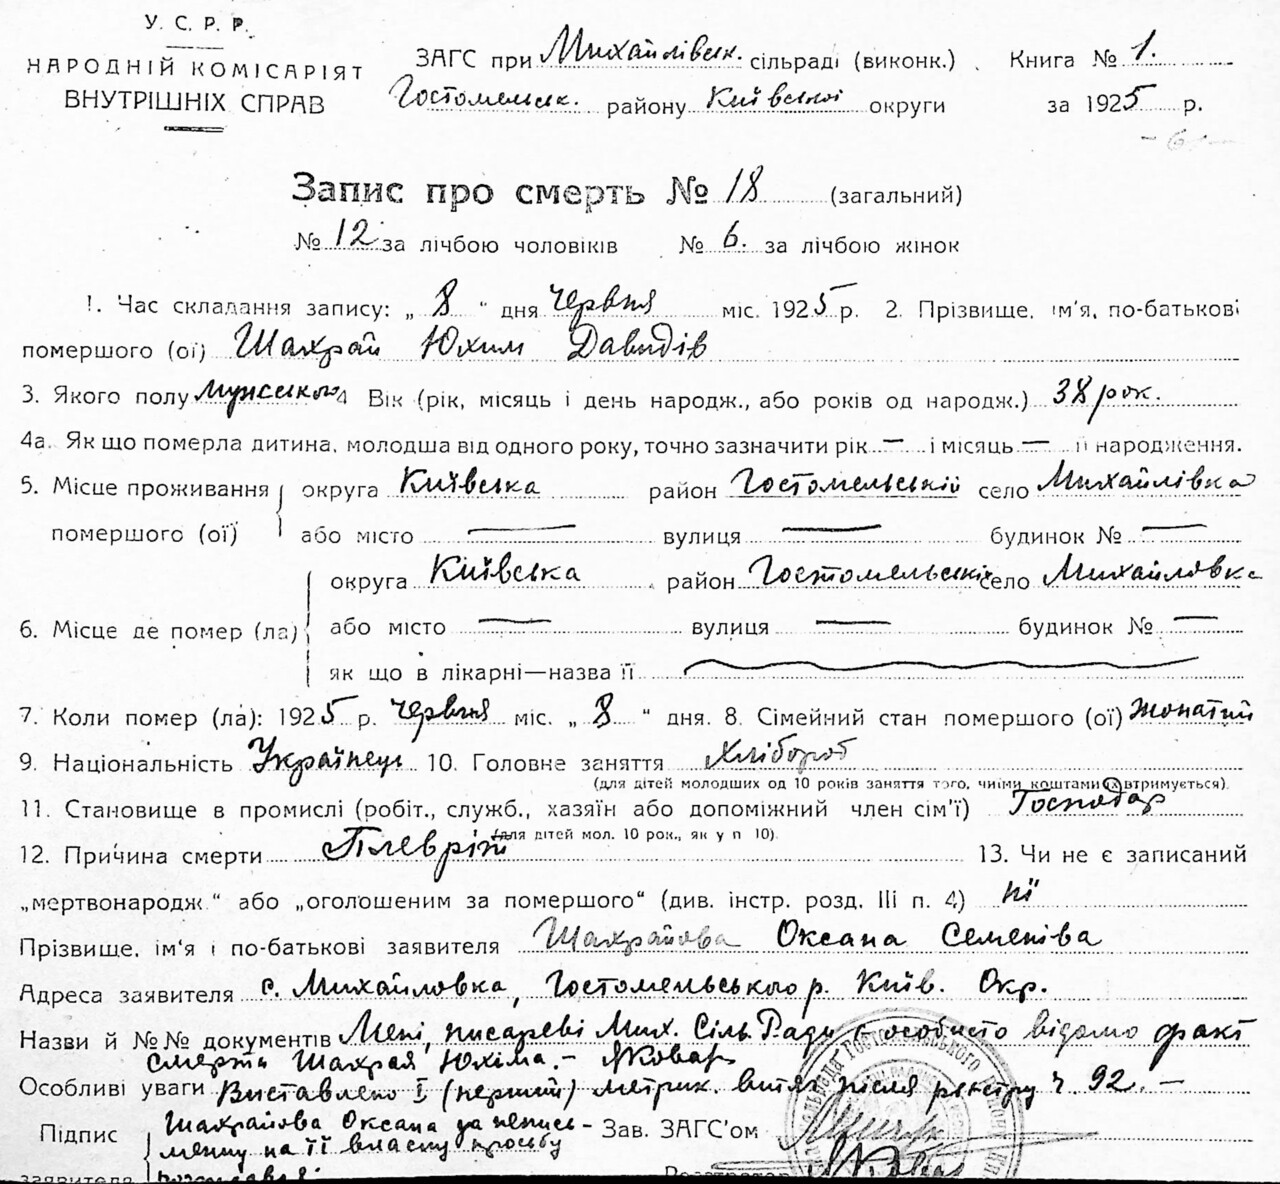 У. С. Р. Р.
НАРОДНІЙ КОМІСАРІЯТ
ВНУТРІШНІХ СПРАВ
ЗАГС при Михайлівськ. сільраді (виконк.) Книга № 1.
Гостомельськ. району Київської округи за 1925 р.
- 6 -
Запис про смерть № 18 (загальний)
№ 12 за лічбою чоловіків № 6. за лічбою жінок
1. Час складання запису: „ 8 “ дня Червня міс. 1925 р. 2. Прізвище, ім'я, по-батькові
помершого (ої) Шахрай Юхим Давидів
3. Якого полу мужського 4 Вік (рік, місяць і день народж., або років од народж.) 38 рок.
4а. Як що померла дитина, молодша від одного року, точно зазначити рік — і місяць — її народження.
5. Місце проживання помершого (ої) округа Київська район Гостомельській село Михайлівка
або місто — вулиця — будинок № —
6. Місце де помер (ла) округа Київська район Гостомельській село Михайловка
або місто — вулиця — будинок № —
як що в лікарні—назва її
7. Коли помер (ла): 1925 р. Червня міс. „ 8 “ дня. 8. Сімейний стан помершого (ої) жонатий
9. Національність Українець 10. Головне заняття Хлібороб
(для дітей молодших од 10 років заняття того, чиїми коштами їх втримується).
11. Становище в промислі (робіт., служб., хазяїн або допоміжний член сім'ї) Господар
(для дітей мол. 10 рок., як у п 10).
12. Причина смерти Плевріт 13. Чи не є записаний
„мертвонародж.“ або „оголошеним за помершого“ (див. інстр. розд. III п. 4) ні
Прізвище, ім'я і по-батькові заявителя Шахрайова Оксана Семенівa
Адреса заявителя с. Михайловка, Гостомельського р. Київ. Окр.
Назви й №№ документів Мені, писареві Мих. Сіль Ради особисто відомо факт
смерти Шахрая Юхіма. -
Особливі уваги Виставлено I (перший) метрик. витяг після реєстру ч. 92. —
Підпис заявителя Шахрайова Оксана
менна на її власну просьбу
Зав. ЗАГС'ом